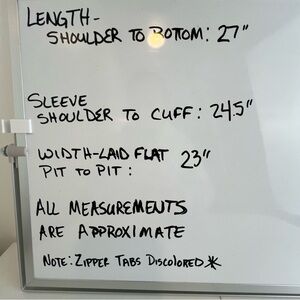 LENGTH-
SHOULDER TO BOTTOM: 27"
SLEEVE
SHOULDER TO CUFF: 24.5"
WIDTH-LAID FLAT 23"
PIT TO PIT:
ALL MEASUREMENTS
ARE APPROXIMATE
NOTE: ZIPPER TABS DISCOLORED *